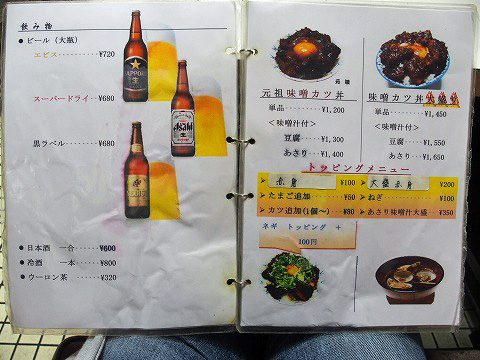 飲み物
● ビール（大瓶）
エビス……………¥720
SAPPORO
生
スーパードライ……¥680
Asahi
生
黒ラベル…………¥680
● 日本酒 一合……¥600
● 冷酒 一本……¥800
● ウーロン茶………¥320
元祖味噌カツ丼
単品………¥1,200
<味噌汁付>
豆腐………¥1,300
あさり……¥1,400
味噌カツ丼大盛り
単品………¥1,450
<味噌汁付>
豆腐………¥1,550
あさり……¥1,650
トッピングメニュー
➢ 赤身 ¥100
➢ たまご追加 ¥50
➢ カツ追加(1個～) ¥80
➢ 大盛赤身 ¥200
➢ ねぎ ¥100
➢ あさり味噌汁大盛 ¥350
ネギ トッピング +
100円